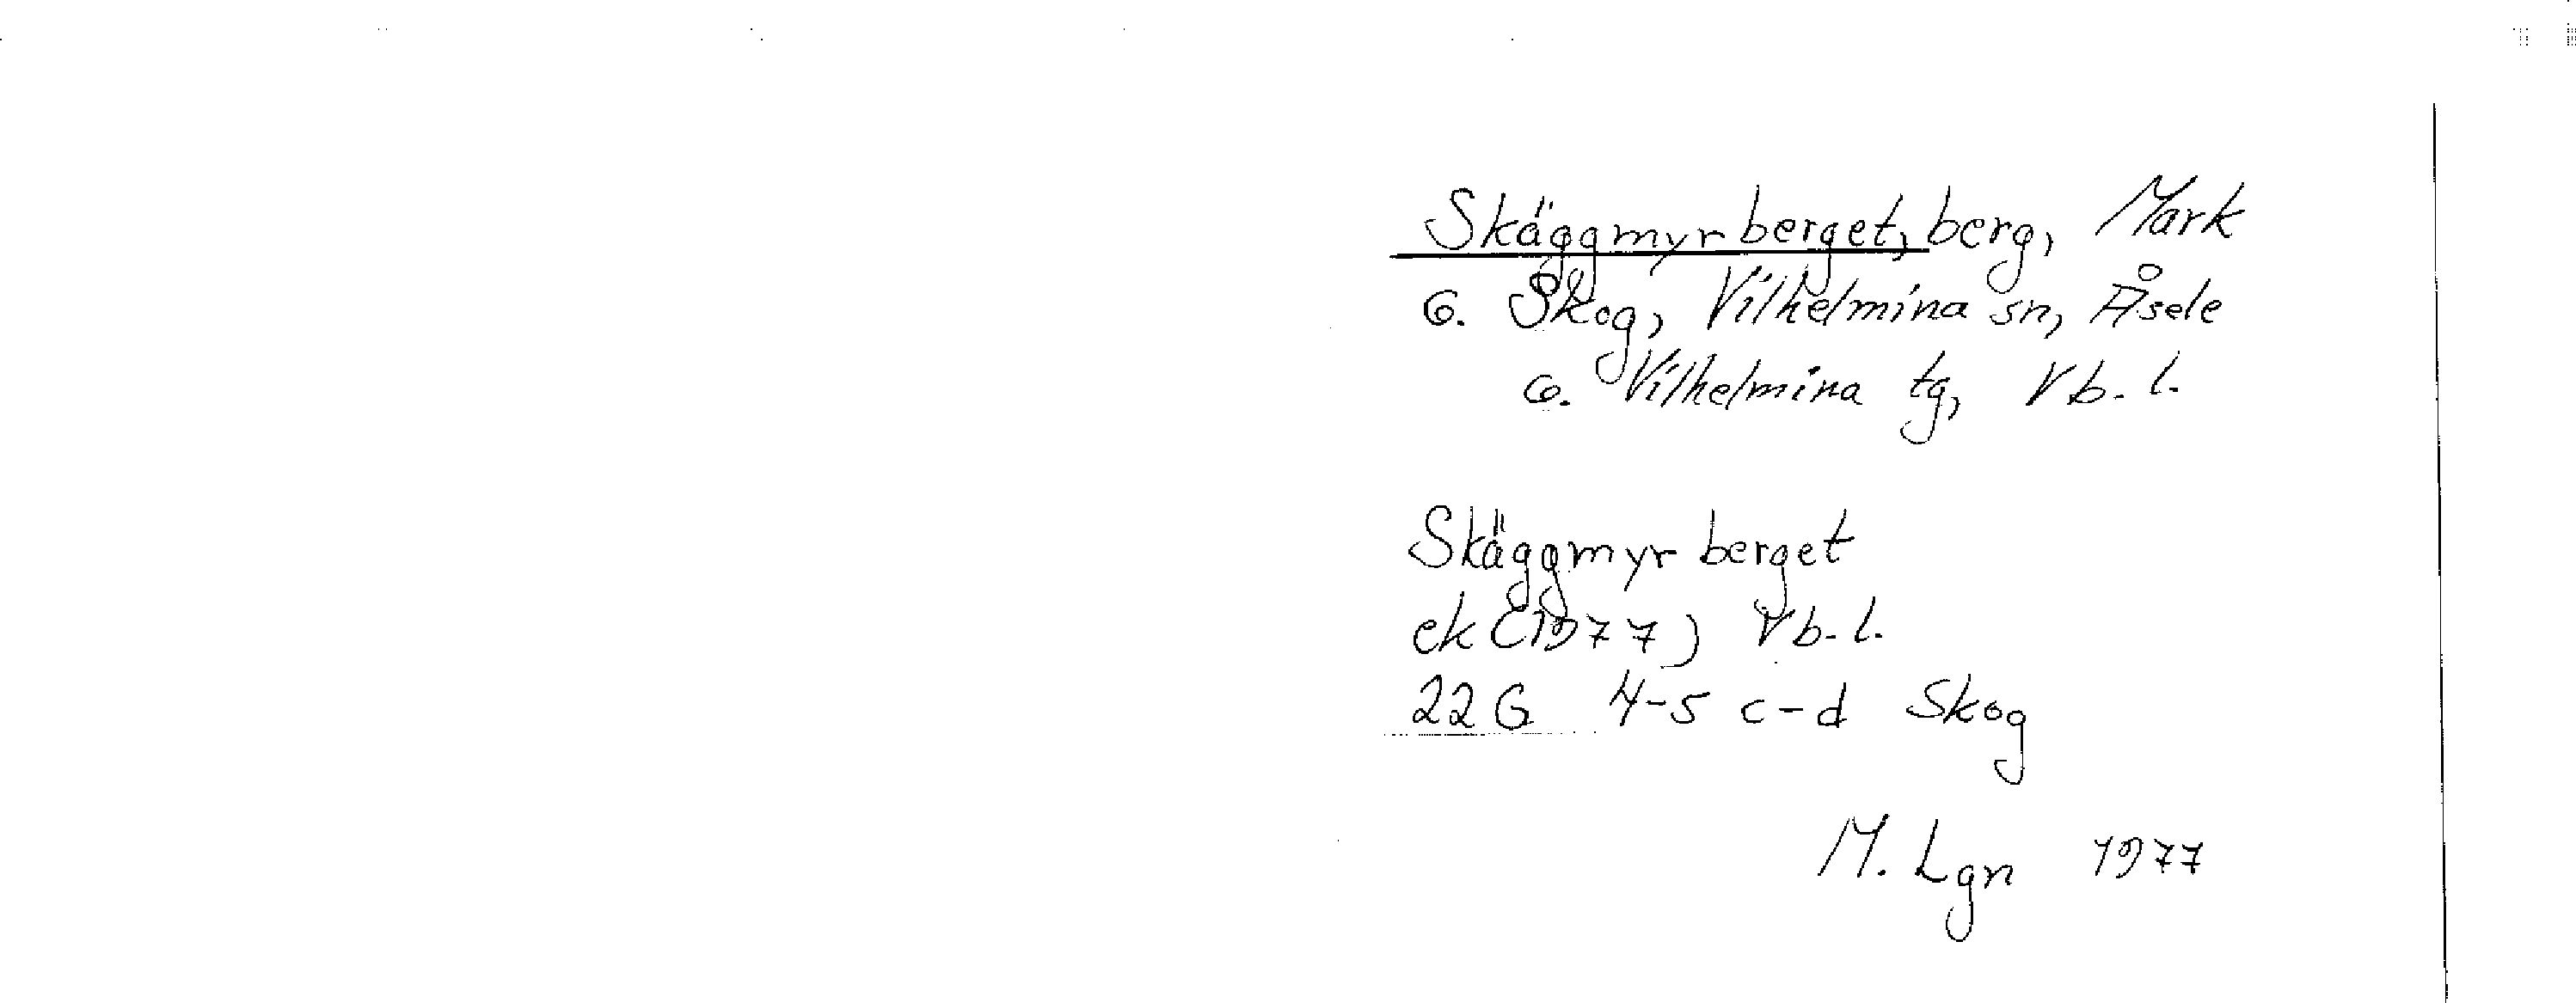 Skäggmyrberget, berg, Mark
o. Skog, Vilhelmina sn, Åsele
o. Vilhelmina tg, Vb. l.
Skäggmyrberget
ek (1977) Vb. l.
22 G 4-5 c-d Skog
M. Lgn 1977